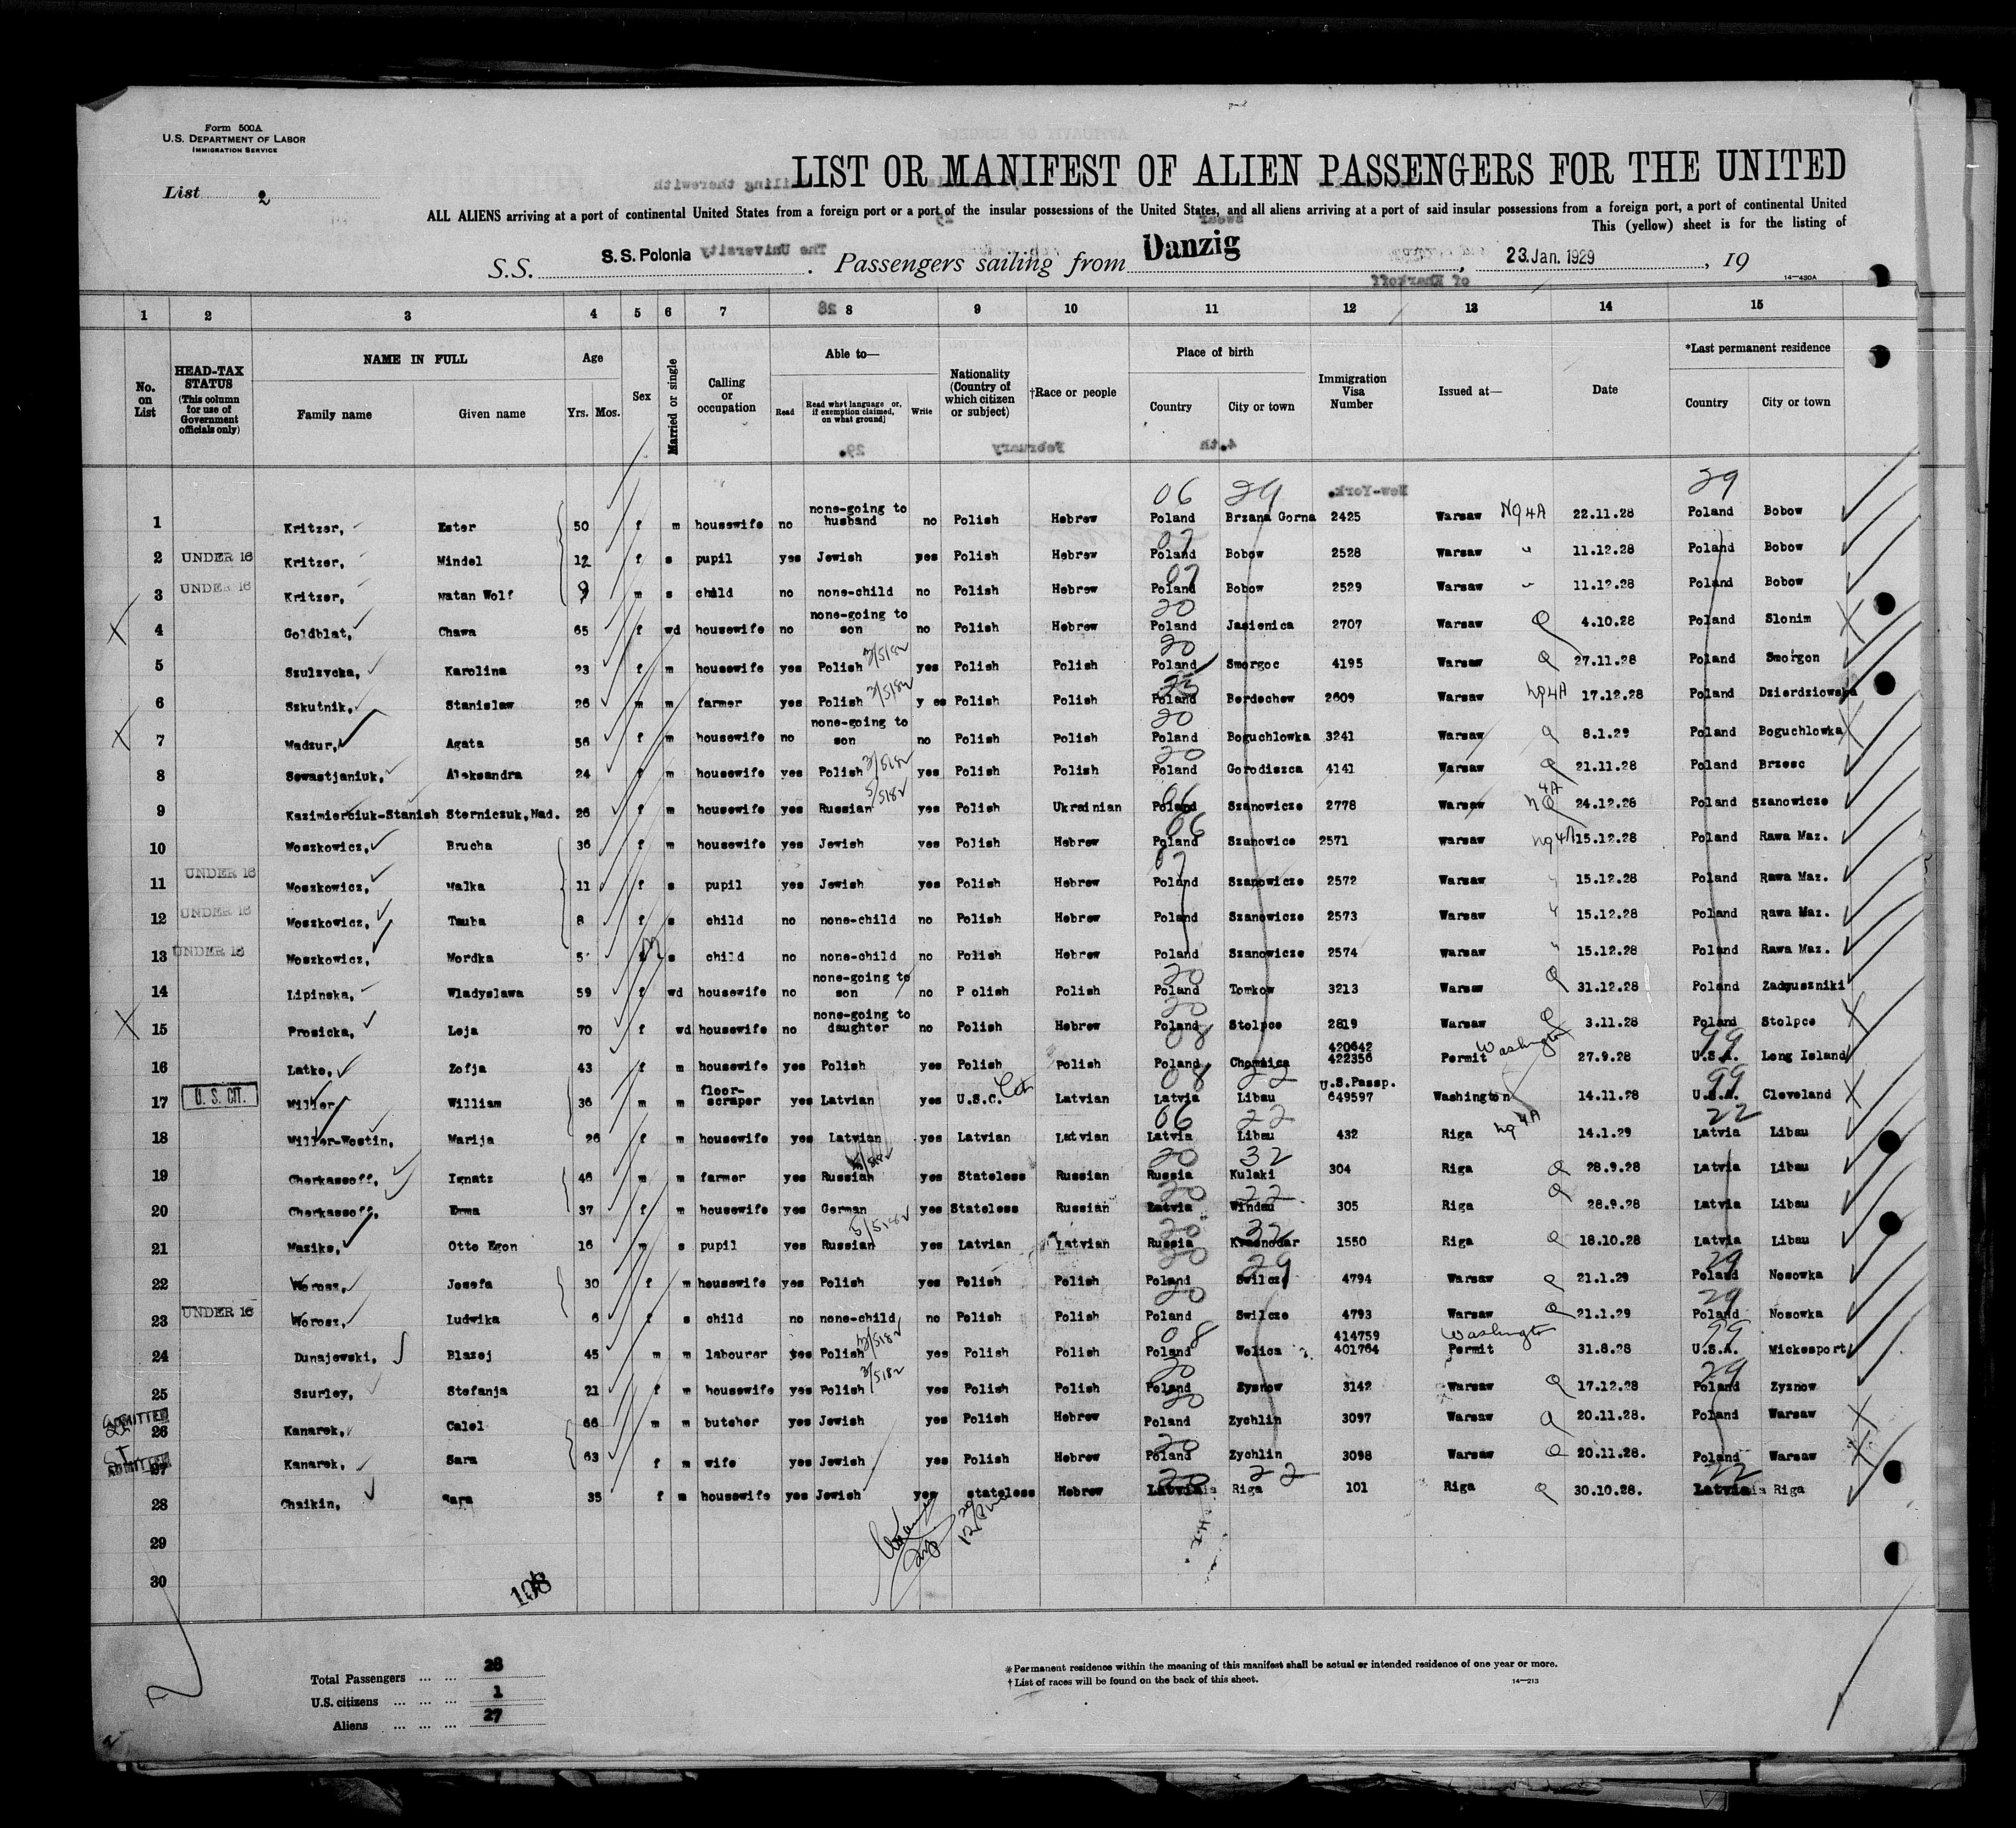 Form 500A
U.S. DEPARTMENT OF LABOR
IMMIGRATION SERVICE
List 2
LIST OR MANIFEST OF ALIEN PASSENGERS FOR THE UNITED
ALL ALIENS arriving at a port of continental United States from a foreign port or a port of the insular possessions of the United States, and all aliens arriving at a port of said insular possessions from a foreign port, a port of continental United
This (yellow) sheet is for the listing of
S.S. S.S. Polonia Passengers sailing from Danzig, 23. Jan. 1929, 19
14-430A
1 2 3 4 5 6 7 8 9 10 11 12 13 14 15
No. on List
HEAD-TAX STATUS (This column for use of Government officials only)
NAME IN FULL
Family name Given name
Age
Yrs. Mos.
Sex
Married or single
Calling or occupation
Able to—
Read Read what language or, if exemption claimed, on what ground] Write
Nationality (Country of which citizen or subject)
†Race or people
Place of birth
Country City or town
Immigration Visa Number
Issued at—
Date
*Last permanent residence
Country City or town
06 29 29
1 Kritzer, Ester 50 f m housewife no none-going to husband no Polish Hebrew Poland Brzana Gorna 2425 Warsaw NQ4A 22.11.28 Poland Bobow
2 UNDER 16 Kritzer, Mindel 12 f s pupil yes Jewish yes Polish Hebrew Poland Bobow 2528 Warsaw 11.12.28 Poland Bobow
3 UNDER 16 Kritzer, Natan Wolf 9 m s child no none-child no Polish Hebrew Poland Bobow 2529 Warsaw 11.12.28 Poland Bobow
4 Goldblat, Chawa 65 f wd housewife no none-going to son no Polish Hebrew Poland Jasienica 2707 Warsaw Q 4.10.28 Poland Slonim
5 Szulzycka, Karolina 23 f m housewife yes Polish yes Polish Polish Poland Smorgoc 4195 Warsaw Q 27.11.28 Poland Smorgon
6 Szkutnik, Stanislaw 26 m m farmer yes Polish yes Polish Polish Poland Berdechow 2609 Warsaw NQ4A 17.12.28 Poland Dzierdziowska
7 Madzur, Agata 56 f m housewife no none-going to son no Polish Polish Poland Boguchlowka 3241 Warsaw Q 8.1.29 Poland Boguchlowka
8 Sewastjaniuk, Aleksandra 24 f m housewife yes Polish yes Polish Polish Poland Gorodiszca 4141 Warsaw Q 21.11.28 Poland Brzesc
9 Kazimierbiuk-Stanish Sterniczuk, Nad. 26 f m housewife yes Russian yes Polish Ukrainian Poland Szanowicze 2778 Warsaw NQ 4A 24.12.28 Poland Szanowicze
10 Moszkowicz, Brucha 36 f m housewife yes Jewish yes Polish Hebrew Poland Szanowice 2571 Warsaw NQ4A 15.12.28 Poland Rawa Maz.
11 UNDER 16 Moszkowicz, Malka 11 f s pupil yes Jewish yes Polish Hebrew Poland Szanowicze 2572 Warsaw 15.12.28 Poland Rawa Maz.
12 UNDER 16 Moszkowicz, Tauba 8 f s child no none-child no Polish Hebrew Poland Szanowicze 2573 Warsaw 15.12.28 Poland Rawa Maz.
13 UNDER 16 Moszkowicz, Mordka 5 m s child no none-child no Polish Hebrew Poland Szanowicze 2574 Warsaw 15.12.28 Poland Rawa Maz.
14 Lipinska, Wladyslawa 59 f wd housewife no none-going to son no Polish Polish Poland Tomkow 3213 Warsaw Q 31.12.28 Poland Zaduszniki
15 Prosicka, Leja 70 f wd housewife no none-going to daughter no Polish Hebrew Poland Stolpce 2819 Warsaw Q 3.11.28 Poland Stolpce
16 Latko, Zofja 43 f m housewife yes Polish yes Polish Polish Poland Chomaica 420642 422356 Permit Washington 27.9.28 U.S.A. Long Island
17 U. S. CIT. Willer William 36 m m floor-scraper yes Latvian yes U.S.C. Cit Latvian Latvia Libau U.S.Passp. 649597 Washington 14.11.28 U.S.A. Cleveland
18 Willer-Wostin, Marija 26 f m housewife yes Latvian yes Latvian Latvian Latvia Libau 432 Riga NQ4A 14.1.29 Latvia Libau
19 Cherkassoff, Ignatz 46 m m farmer yes Russian yes Stateless Russian Russia Kulaki 304 Riga Q 28.9.28 Latvia Libau
20 Cherkassoff, Emma 37 f m housewife yes German yes Stateless Russian Latvia Windau 305 Riga Q 28.9.28 Latvia Libau
21 Maziks, Otto Egon 16 m s pupil yes Russian yes Latvian Latvian Russia Krasnodar 1550 Riga Q 18.10.28 Latvia Libau
22 Worosz, Josefa 30 f m housewife yes Polish yes Polish Polish Poland Swilcze 4794 Warsaw Q 21.1.29 Poland Nosowka
23 UNDER 16 Worosz, Ludwika 6 f s child no none-child no Polish Polish Poland Swilcze 4793 Warsaw Q 21.1.29 Poland Nosowka
24 Dunajewski, Blazej 45 m m labourer yes Polish yes Polish Polish Poland Wolica 414759 401764 Washington Permit 31.8.28 U.S.A. Mickesport
25 Szurley, Stefanja 21 f m housewife yes Polish yes Polish Polish Poland Zyznow 3142 Warsaw Q 17.12.28 Poland Zyznow
ADMITTED 26 Kanarek, Calel 66 m m butcher yes Jewish yes Polish Hebrew Poland Zychlin 3097 Warsaw Q 20.11.28. Poland Warsaw
ADMITTED 27 Kanarek, Sara 63 f m wife yes Jewish yes Polish Hebrew Poland Zychlin 3098 Warsaw Q 20.11.28. Poland Warsaw
28 Chaikin, Sara 35 f m housewife yes Jewish yes stateless Hebrew Latvia Riga 101 Riga Q 30.10.28. Latvia Riga
29
30
108
Total Passengers ... ... 28
U.S. citizens ... ... ... 1
Aliens ... ... ... 27
*Permanent residence within the meaning of this manifest shall be actual or intended residence of one year or more.
†List of races will be found on the back of this sheet.
14-213